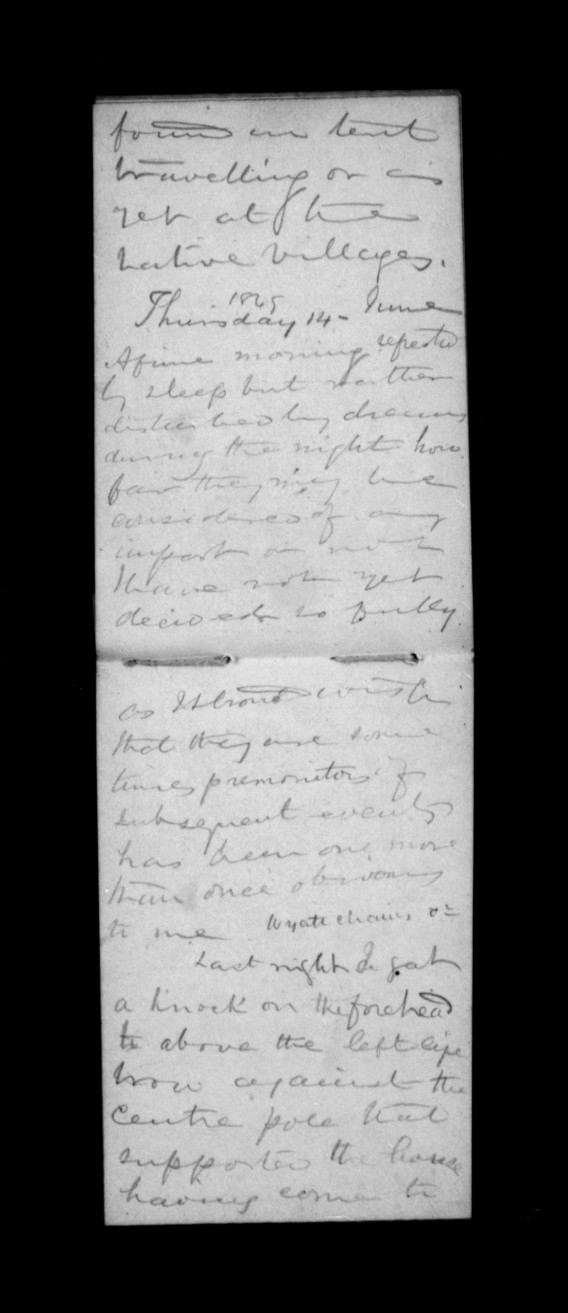 found in tent
travelling or as
yet at the
native villages.
1849
Thursday 14 - June
A fine morning refreshed
by sleep but rather
disturbed by dreams
during the night how
far they may be
considered of any
import or not
I have not yet
decided so fully
as I should wish
that they are some
times premonitors of
subsequent events
has been one more
than once obvious
to me Wyatt chains &c
Last night I got
a knock on the forehead
to above the left eye
brow against the
centre pole that
supported the house
having come to